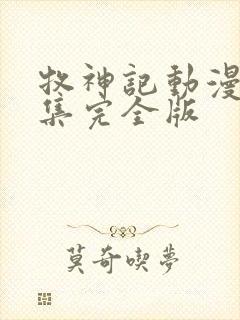 牧神記動漫
集完全版
莫奇喫夢